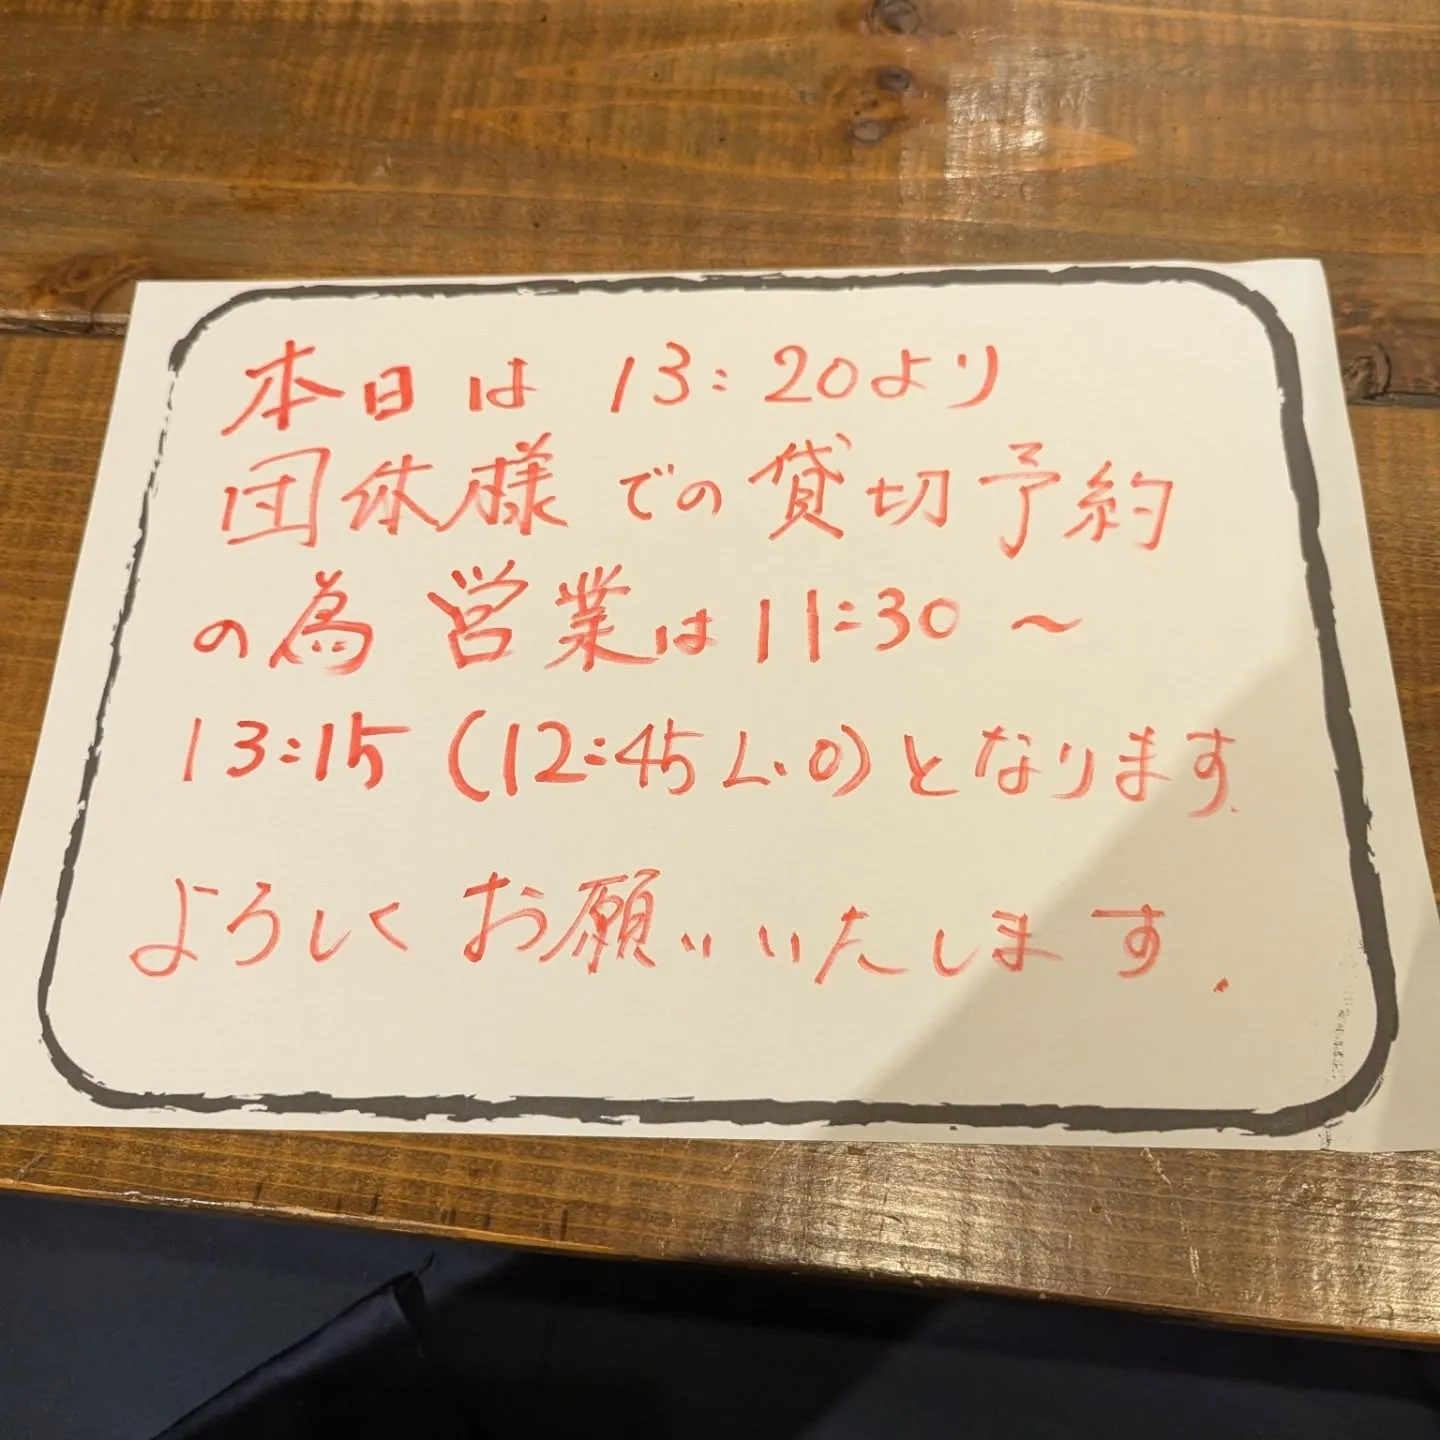 本日は 13:20より
団体様での貸切予約
の為 営業は11:30～
13:15 (12:45 L.O)となります.
よろしくお願いいたします.